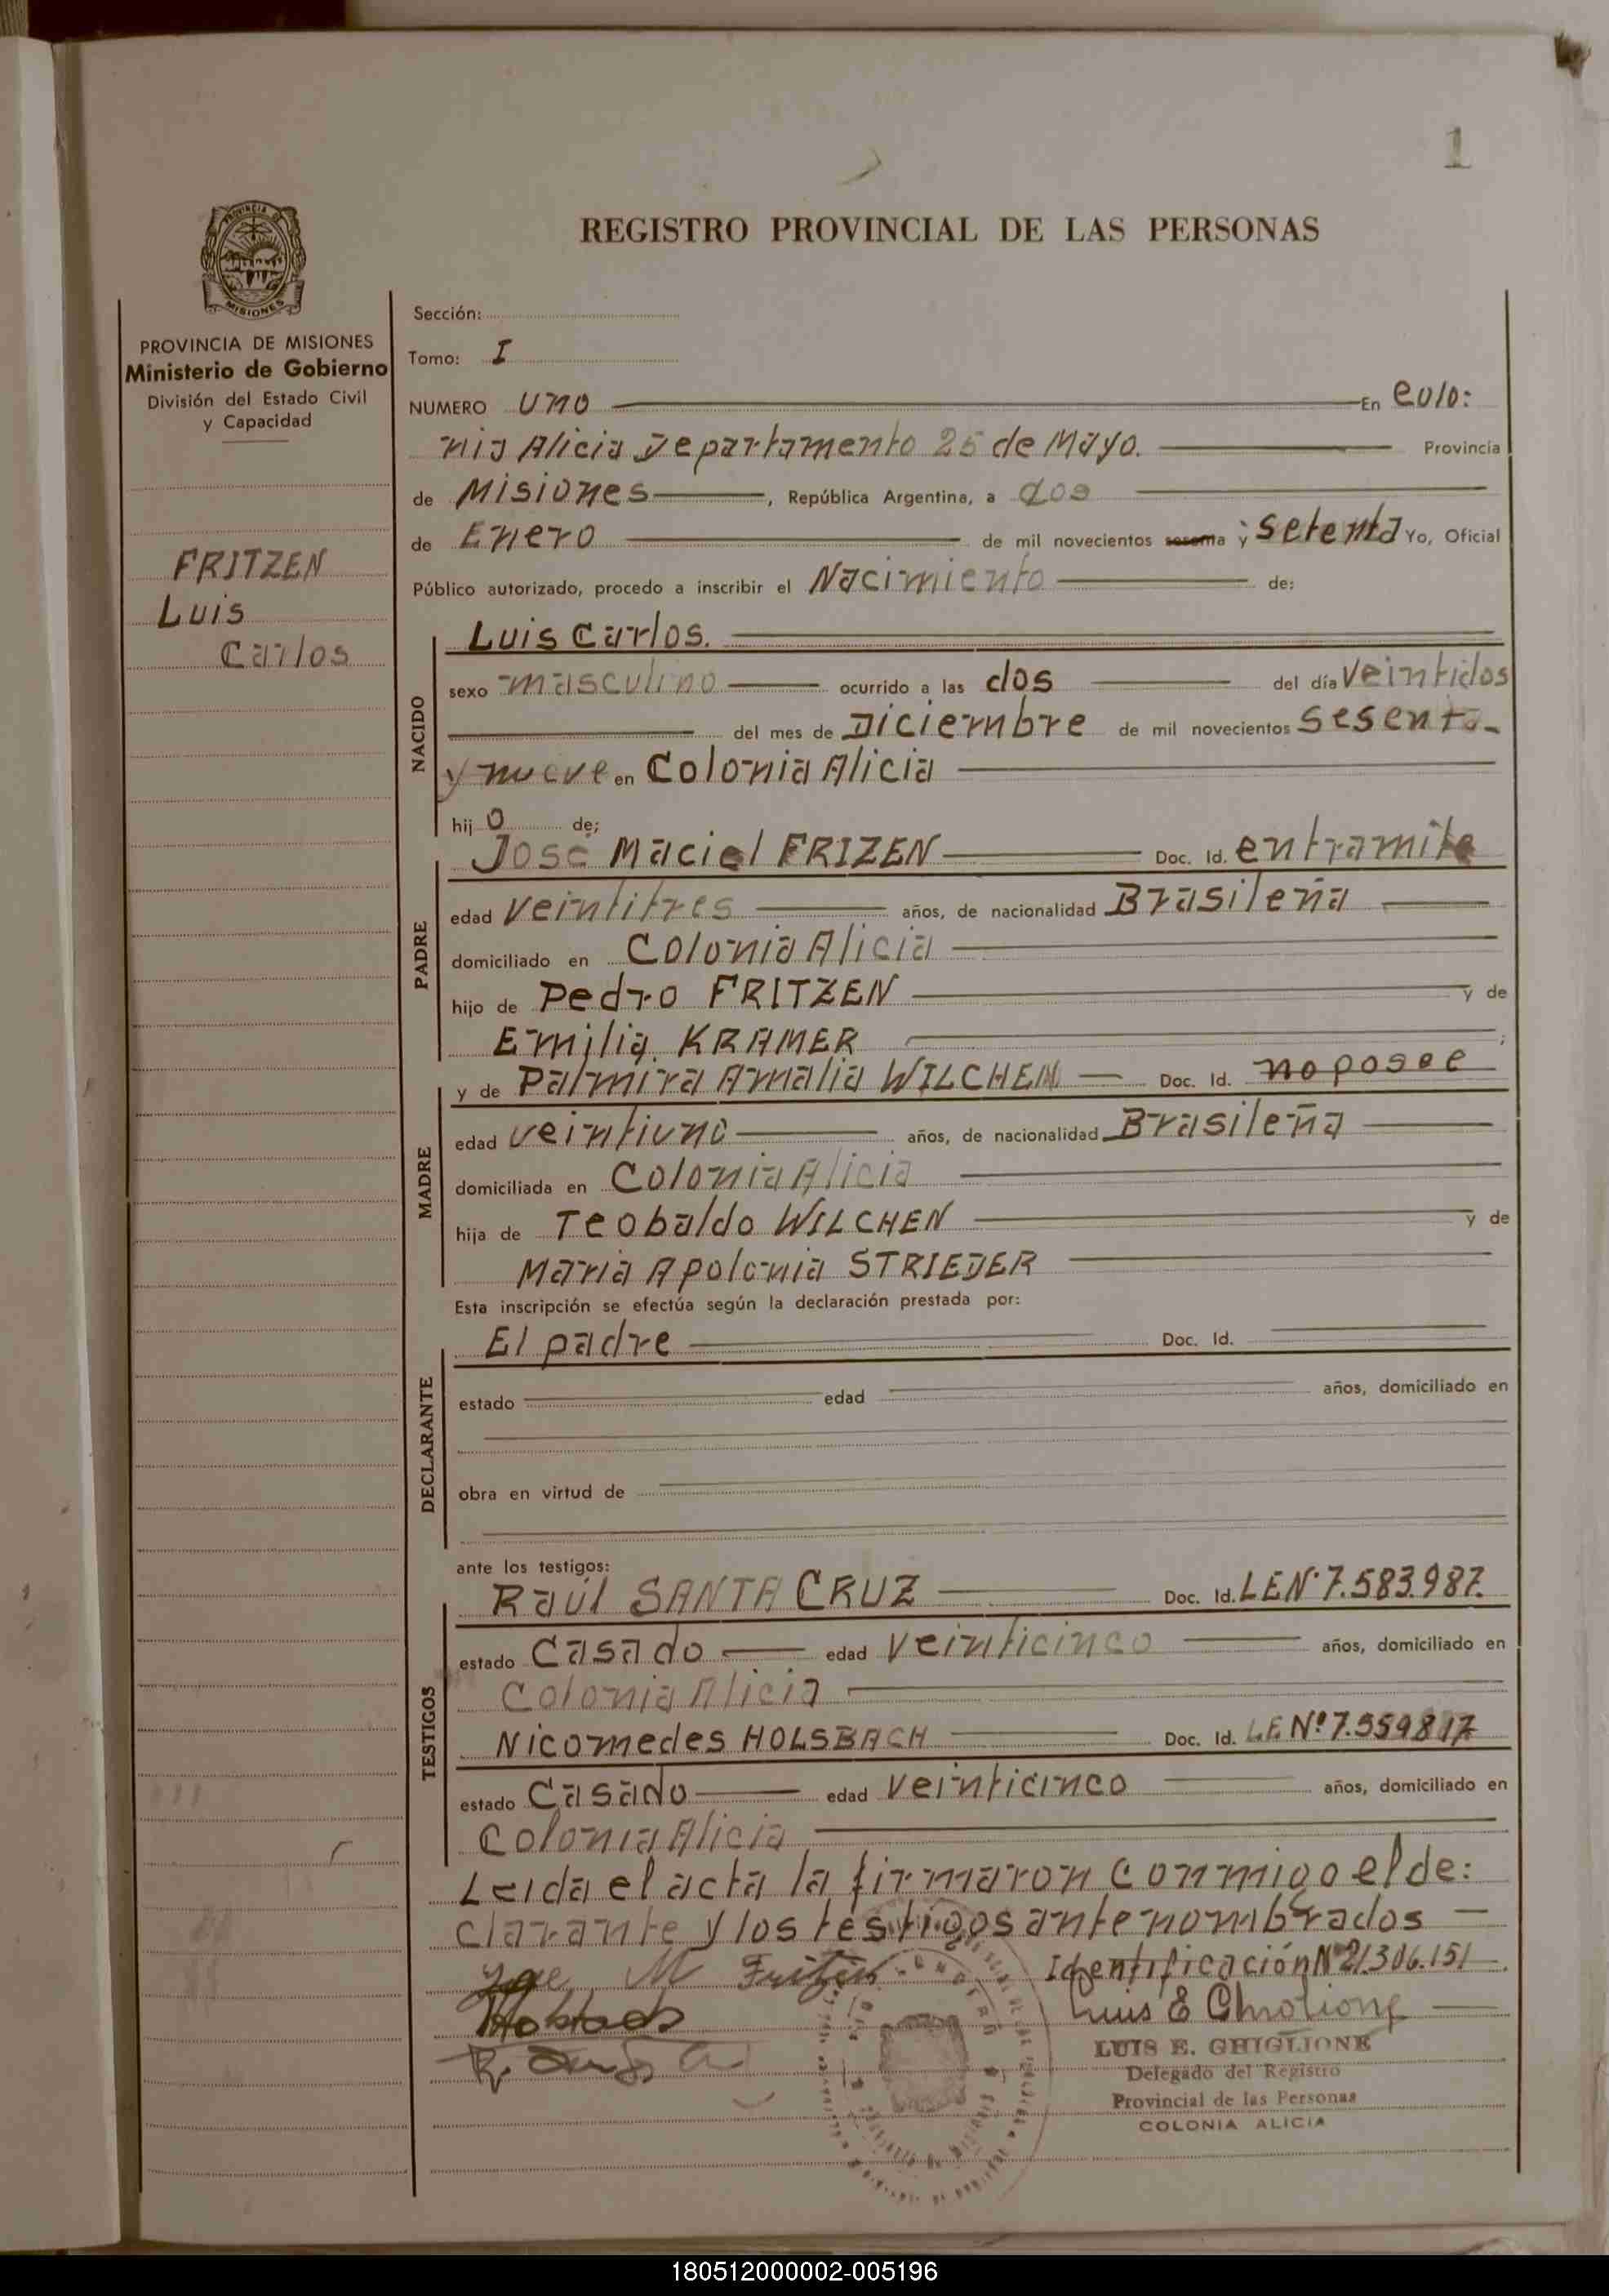 1
PROVINCIA DE
MISIONES
REGISTRO PROVINCIAL DE LAS PERSONAS
PROVINCIA DE MISIONES
Ministerio de Gobierno
División del Estado Civil
y Capacidad
FRITZEN
Luis
Carlos
Sección:
Tomo: I
NUMERO uno En colo:
nia Alicia Departamento 25 de Mayo. Provincia
de Misiones, República Argentina, a dos
de Enero de mil novecientos sesenta y setenta Yo, Oficial
Público autorizado, procedo a inscribir el Nacimiento de:
NACIDO
Luis Carlos.
sexo masculino ocurrido a las dos del día veintidos
del mes de Diciembre de mil novecientos sesenta-
y nueve en Colonia Alicia
hijo de;
PADRE
José Maciel FRIZEN Doc. Id. entramite
edad veintitres años, de nacionalidad Brasileña
domiciliado en Colonia Alicia
hijo de Pedro FRITZEN y de
Emilia KRAMER ;
MADRE
y de Palmira Amalia WILCHEN Doc. Id. no posee
edad veintiuno años, de nacionalidad Brasileña
domiciliada en Colonia Alicia
hija de Teobaldo WILCHEN y de
Maria Apolonia STRIEDER
Esta inscripción se efectúa según la declaración prestada por:
DECLARANTE
El padre Doc. Id.
estado edad años, domiciliado en
obra en virtud de
ante los testigos:
TESTIGOS
Raúl SANTA CRUZ Doc. Id. LEN° 7.583.987.
estado Casado edad veinticinco años, domiciliado en
Colonia Alicia
Nicomedes HOLSBACH Doc. Id. LE Nº 7.559817
estado Casado edad veinticinco años, domiciliado en
Colonia Alicia
Leida el acta la firmaron conmigo el de:
clarante y los testigos antenombrados —
Jose M Fritzen Identificación Nº 21.306.151
Luis E Ghiglione
LUIS E. GHIGLIONE
Delegado del Registro
Provincial de las Personas
COLONIA ALICIA
180512000002-005196